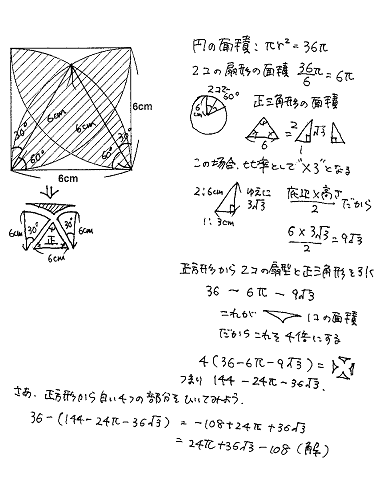 円の面積：πr²＝36π
2コの扇形の面積 36π/6＝6π
2コで60°
6cm
正三角形の面積
6
＝
2
√3
1
この場合、比率として"×3"となる
2：6cm
ゆえに
3√3
1：3cm
底辺×高さ/2 だから
6×3√3/2＝9√3
正方形から2コの扇型と正三角形を引く
36－6π－9√3
これが 1コの面積
だからこれを4倍にする
4(36－6π－9√3)＝
つまり 144－24π－36√3.
6cm
6cm
6cm
30°
30°
60°
60°
6cm
6cm
6cm
30°
30°
正
6cm
さあ、正方形から白い4つの部分をひいてみよう.
36－(144－24π－36√3)＝－108＋24π＋36√3
＝24π＋36√3－108 (解)